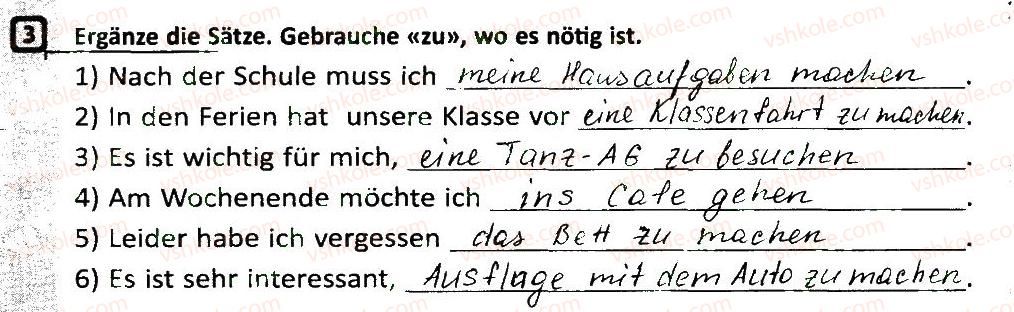 3 Ergänze die Sätze. Gebrauche «zu», wo es nötig ist.
1) Nach der Schule muss ich meine Hausaufgaben machen.
2) In den Ferien hat unsere Klasse vor eine Klassenfahrt zu machen.
3) Es ist wichtig für mich, eine Tanz-AG zu besuchen.
4) Am Wochenende möchte ich ins Cafe gehen.
5) Leider habe ich vergessen das Bett zu machen.
6) Es ist sehr interessant, Ausflage mit dem Auto zu machen.